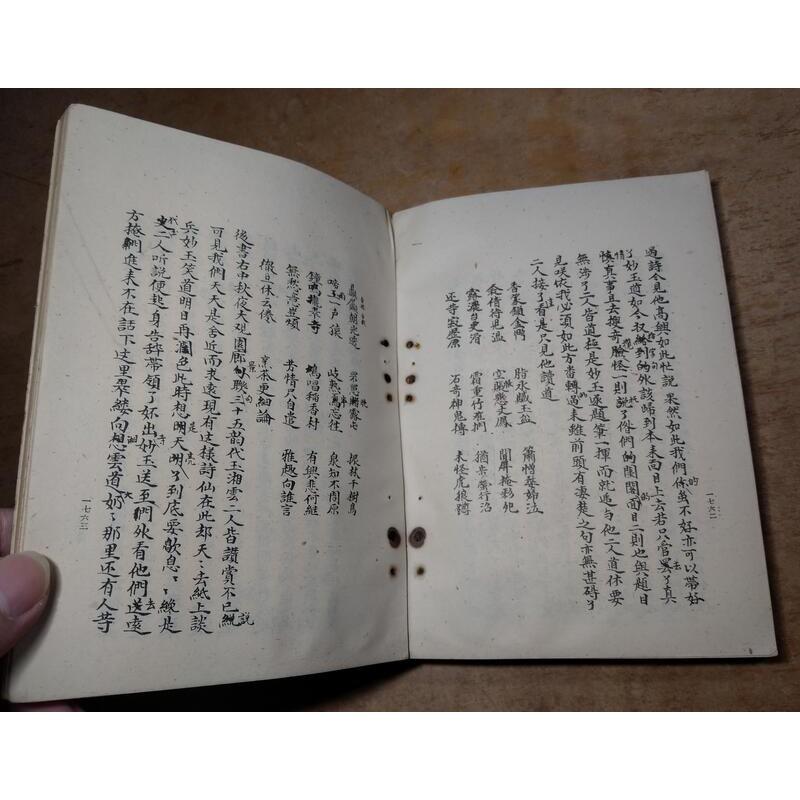 過詩今見他高興如此忙說 果然如此我們的虽不好亦可以帶好
了妙玉道如今收結到的外該歸到本来面目上去若只管
真事且去搜奇臉怪一則說了俗們的閨閣面目二則也與題目
無涉了二人皆道極是妙玉遂題筆一揮而就 与他二人道休要
見咲依我必須如此方 轉過来雖前頭有凄楚之句亦無甚碍了
二人接了看是只見他讀道
香篆銷金鴨 脂水膩玉盆 簫憎嫠婦泣
衾倩侍見温 空帳懸文鳳 間屏掩彩
露濃苔更滑 霜重竹難捫
还 寂歷原 石奇神鬼 木怪虎狼蹲
一七六二
朝光透 露屯 振林千樹鳥
啼 一声猿 岐熟焉忘徃 泉知不問原
鐘鳴攏翠寺 鳩唱稻香村 有興悲何継
無愁意豈煩 芳情只自遣 雅趣向誰言
徹旦休云倦 烹茶更細論
後書右中秋夜大观園即景聯句三十五韻代玉湘雲二人皆讃賞不已說
可見我們天天是舍近而求遠現有这樣詩仙在此却天〻去紙上談
兵妙玉笑道明日再潤色此時想明天明了到底要歇息〻〻纔是
二人听說便起身告辞帶領了妙玉送至門外看他們去遠
方掩門進来不在話下这里翠縷向湘雲道大奶〻那里还有人等
一七六三